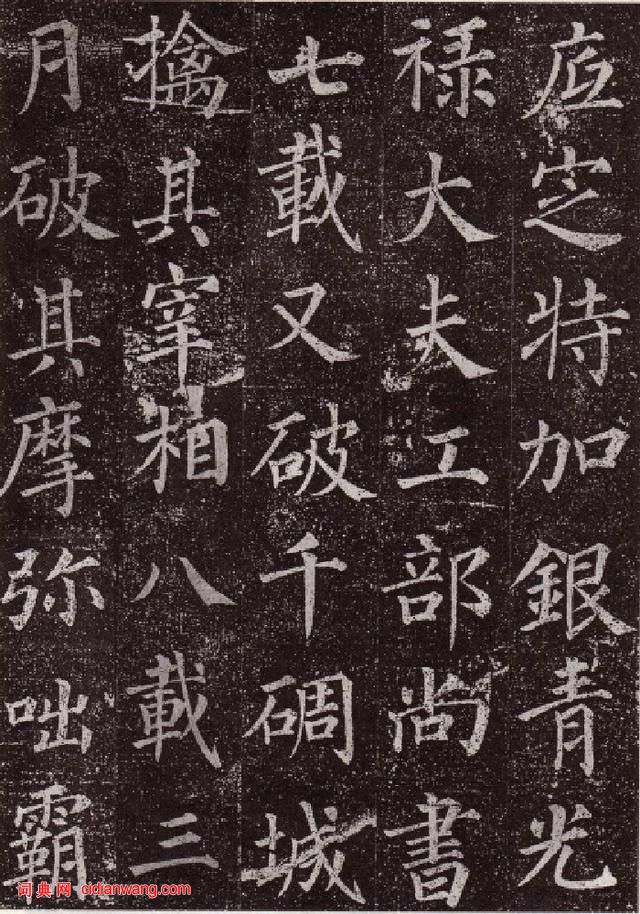 底定特加銀青光
禄大夫工部尚書
七載又破千碉城
擒其宰相八載三
月破其摩弥咄霸
词典网 cidianwang.com